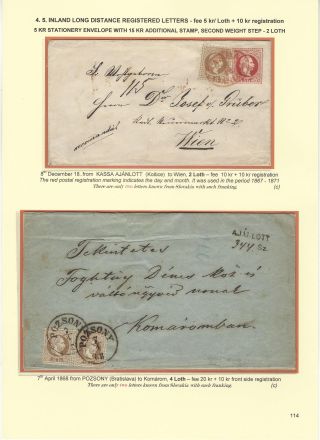 4. 5. INLAND LONG DISTANCE REGISTERED LETTERS - fee 5 kr/ Loth + 10 kr registration
5 KR STATIONERY ENVELOPE WITH 15 KR ADDITIONAL STAMP, SECOND WEIGHT STEP - 2 LOTH
115
Dr Josef
Wien
8th December 18. from KASSA AJÁNLOTT (Košice) to Wien, 2 Loth – fee 10 kr + 10 kr registration
The red postal registration marking indicates the day and month. It was used in the period 1867 - 1871
There are only two letters known from Slovakia with such franking. (c)
AJÁNLOTT
344 Sz
Tekintetes
Dénes
Komáromban.
POZSONY
POZSONY
7th April 1868 from POZSONY (Bratislava) to Komárom, 4 Loth – fee 20 kr + 10 kr front side registration
There are only two letters known from Slovakia with such franking. (c)
114